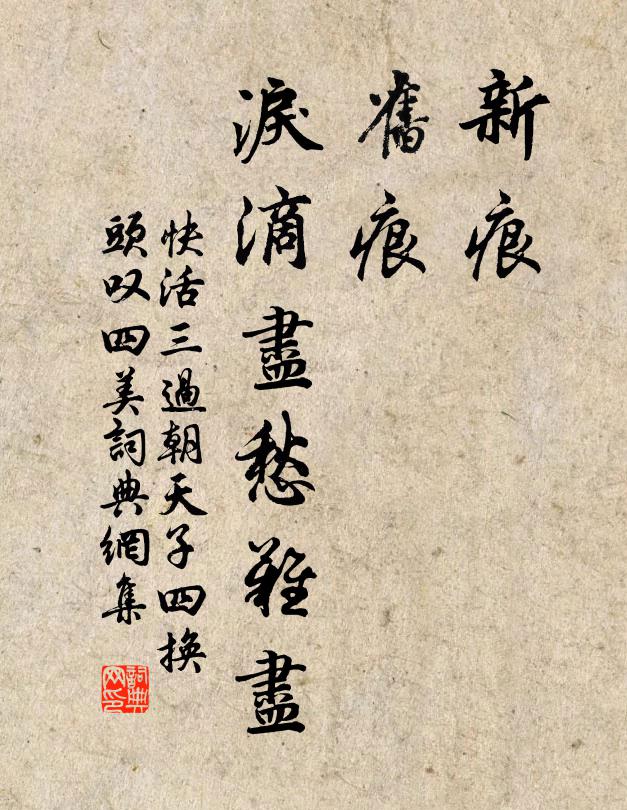 新痕
舊痕
淚滴盡愁難盡
快活三過朝天子四換
頭叹四美詞典網集
詞典
网印